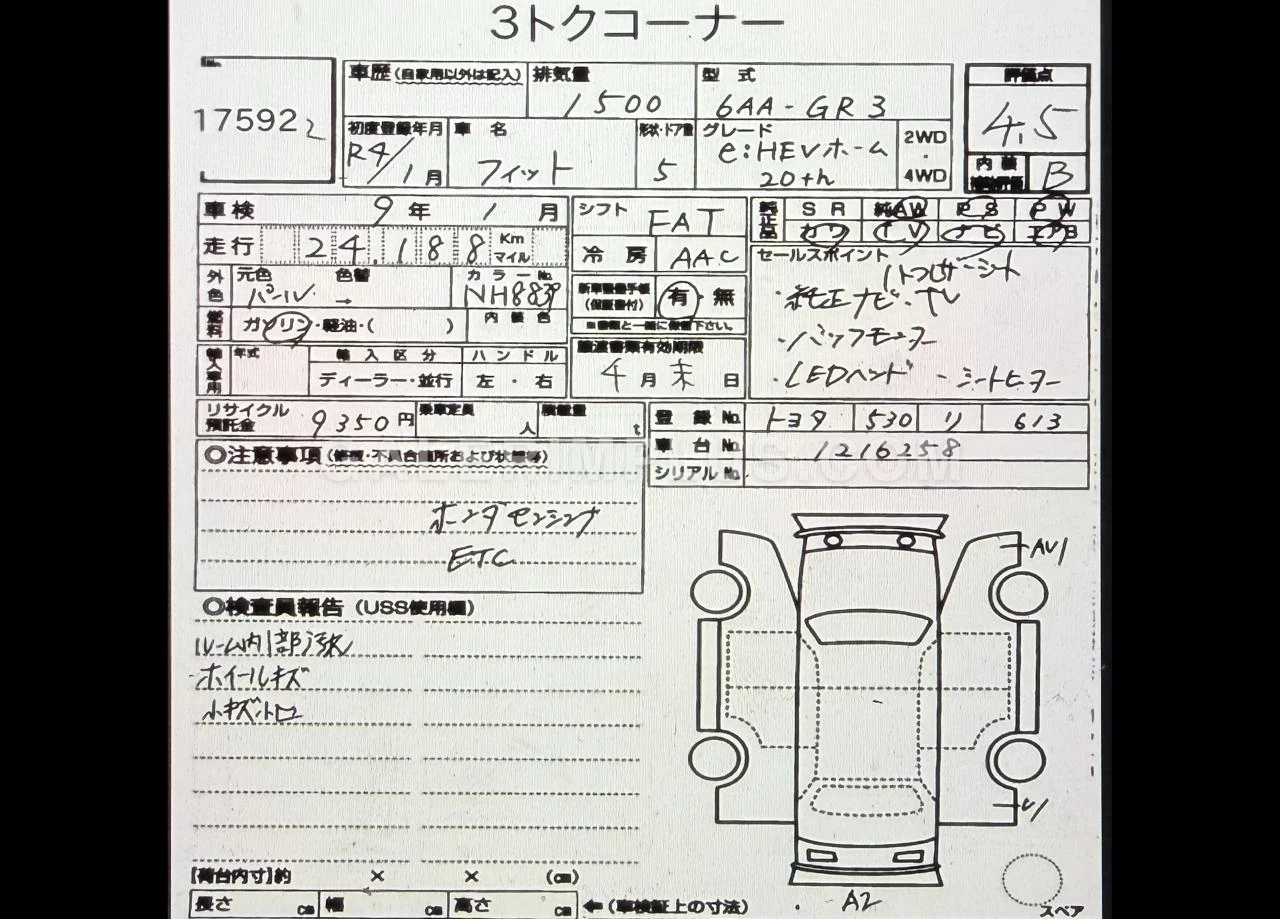 3トクコーナー
17592 2
車歴(自家用以外は記入) 排気量 型 式 評価点
1500 6AA-GR3 4.5
初度登録年月 車 名 形状・ドア数 グレード 2WD・4WD 内装補助評価 B
R4/1月 フィット 5 e:HEVホーム
20th
車検 9年 1月 シフト FAT 純正品 SR 純AW PS PW
走行 24,188 Km マイル 冷房 AAC カワ TV ナビ エアB
外色 元色 色替 カラーNo. セールスポイント
パール → NH883P 新車整備手帳(保証書付) 有・無 ・純正ナビ・TV
燃料 ガソリン・軽油・( ) 内装色 ※書類と一緒に保管下さい。 ・バックモニター
輸入車用 年式 輸入区分 ハンドル 譲渡書類有効期限 ・LEDヘッド ・シートヒーター
ディーラー・並行 左・右 4月末日
リサイクル預託金 9350円 乗車定員 人 積載量 t 登録No. トヨタ 530 リ 613
車台No. 1216258
◎注意事項(修複・不具合箇所および状態等) シリアルNo.
ホンダセンシング
ETC
AV1
◎検査員報告(USS使用欄)
ルーム内部汚れ
ホイールキズ
小キズ・トロ
U1
[荷台内寸]約 × × (cm)
長さ cm 幅 cm 高さ cm ←(車検証上の寸法) A2 スペア